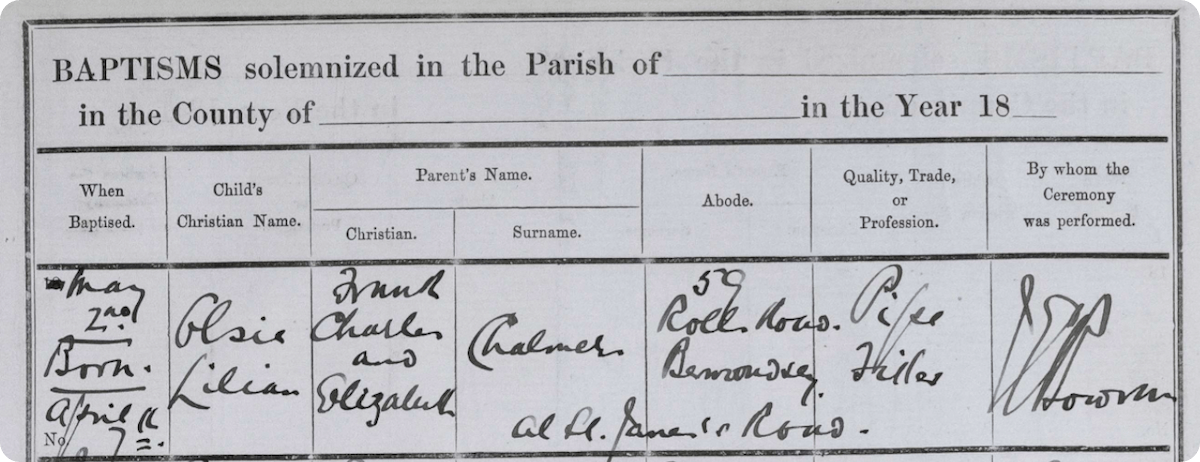 BAPTISMS solemnized in the Parish of
in the County of in the Year 18
When Baptised.
Child's Christian Name.
Parent's Name.
Christian.
Surname.
Abode.
Quality, Trade, or Profession.
By whom the Ceremony was performed.
May
2nd
Born.
April
No
Elsie
Lilian
Frank
Charles
and
Elizabeth
Chalmers
59
Rolls Road.
Bermondsey
Pipe
Fitter
at St. James's Road.